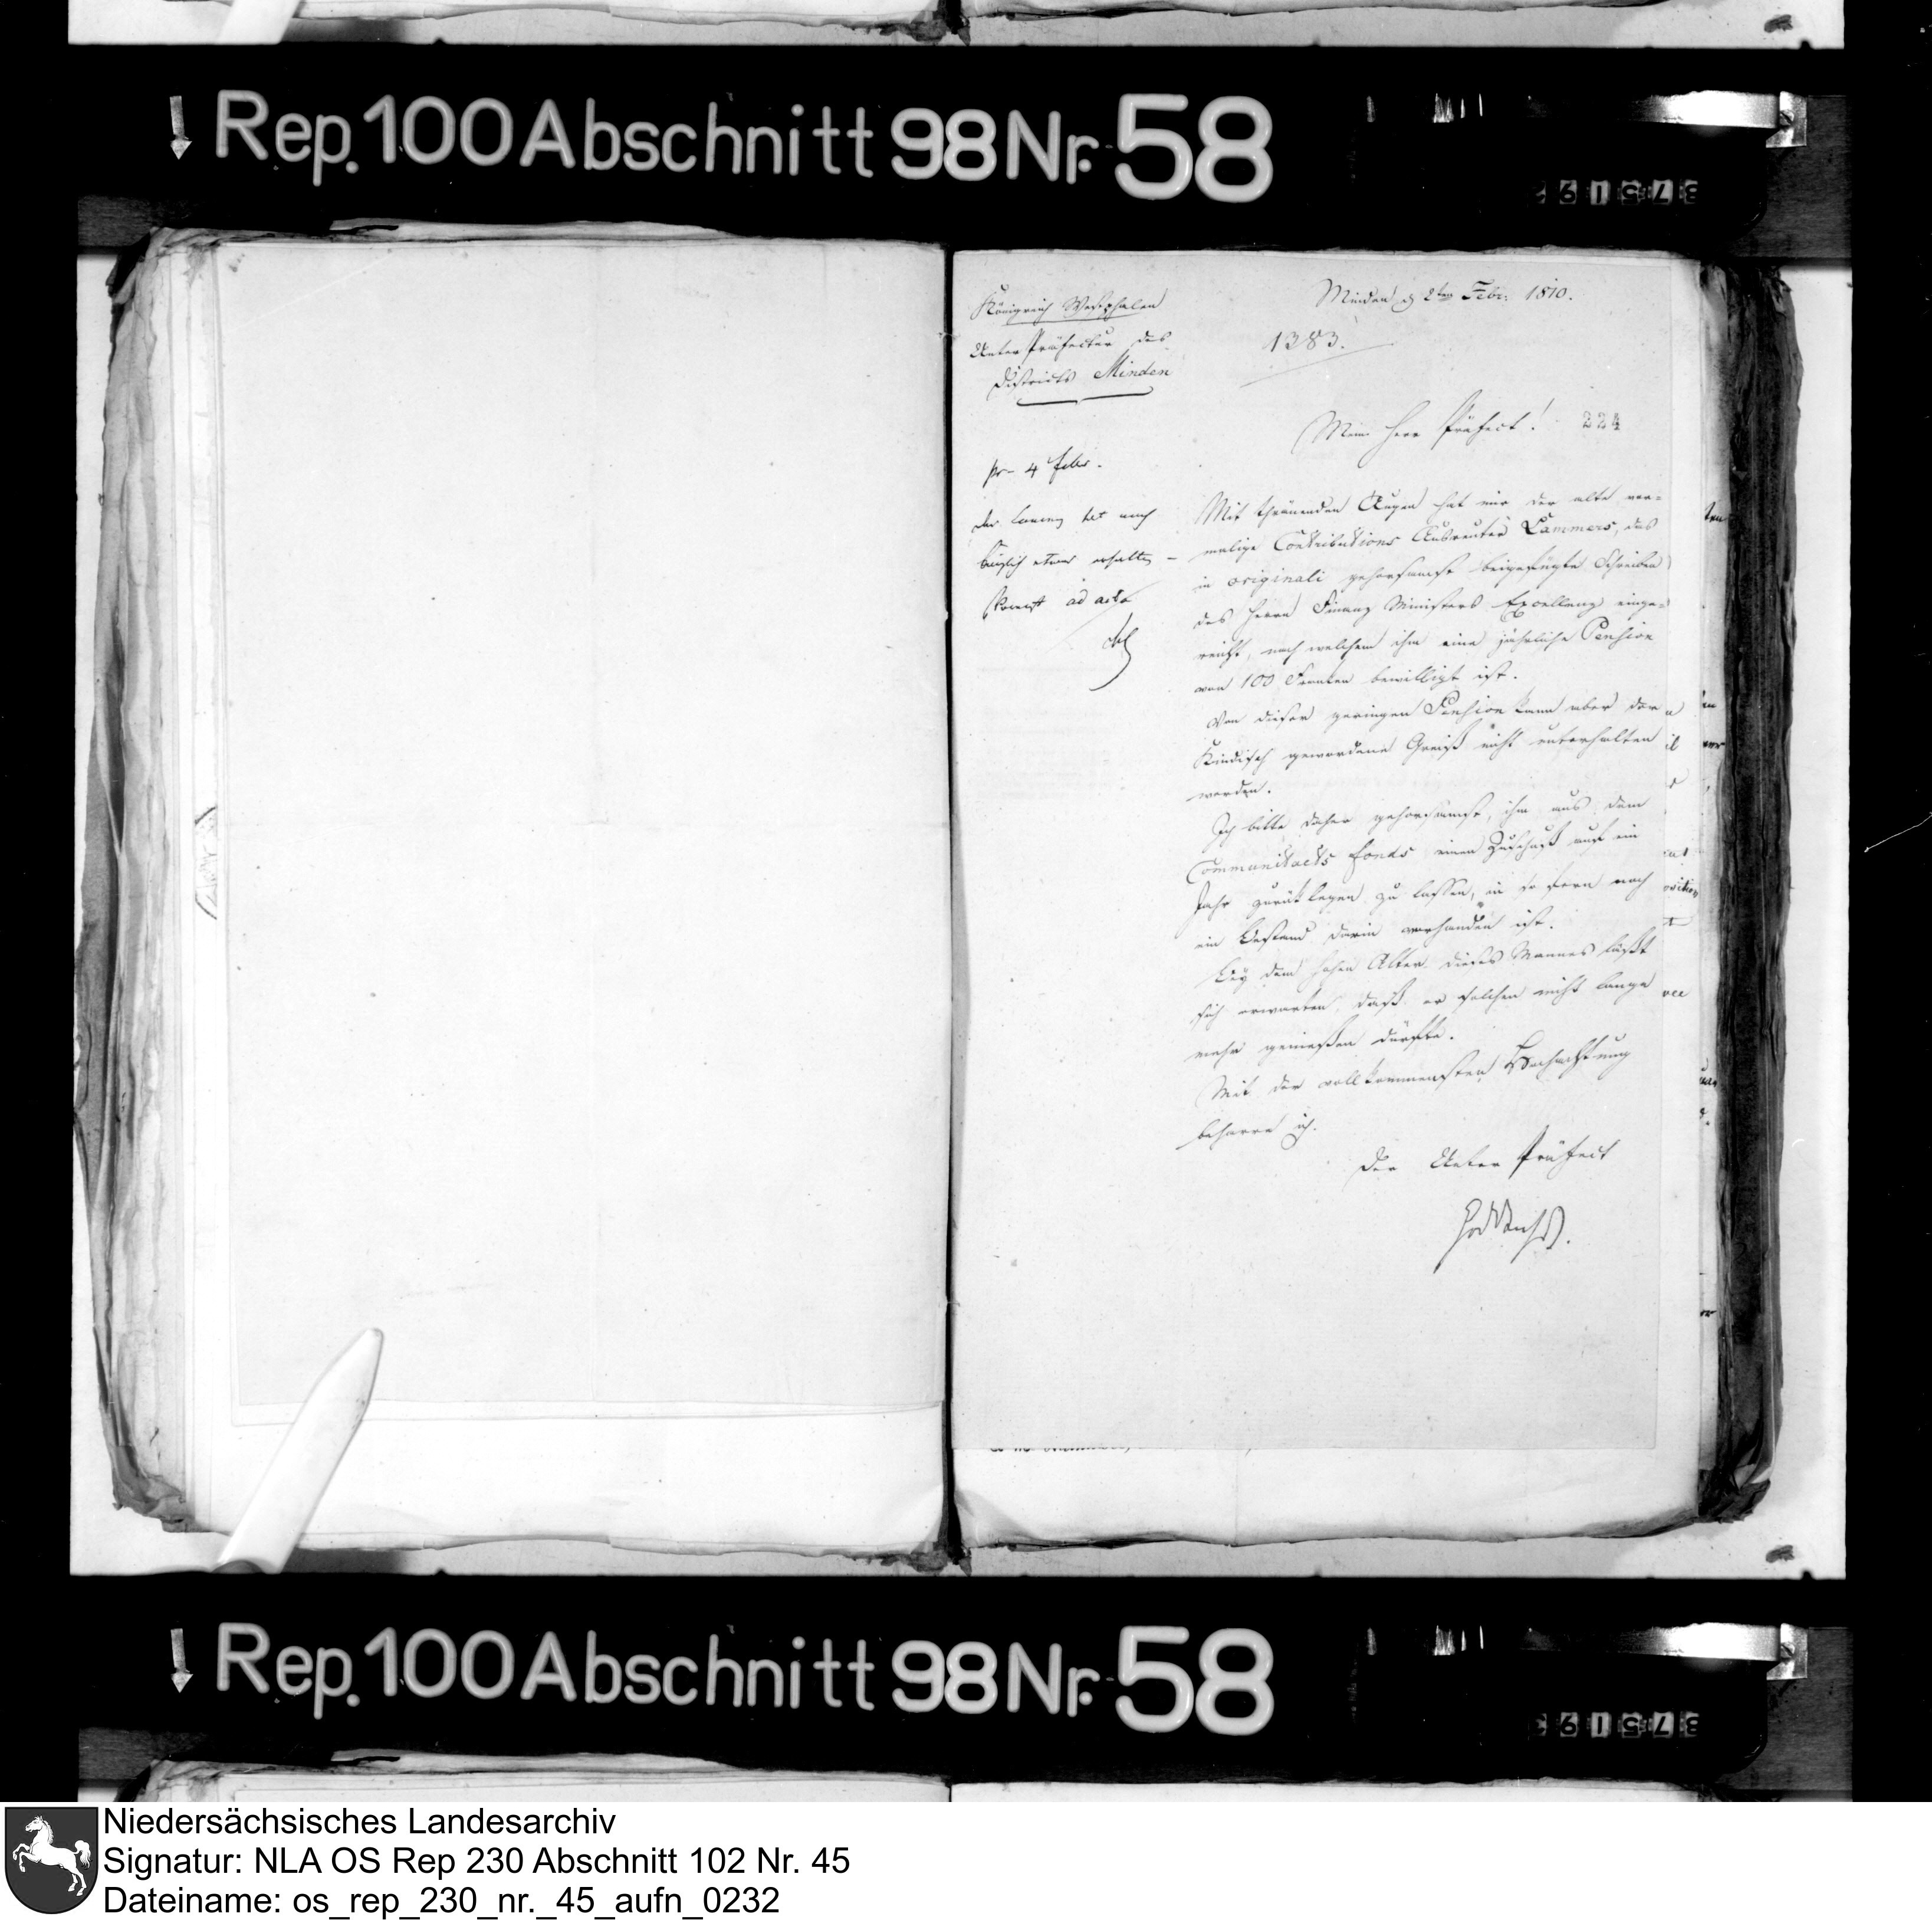 Rep. 100 Abschnitt 98 Nr. 58
Königreich Westphalen
Unter Präfectur des
Districts Minden
Minden d 2ten Febr. 1810.
1383.
Mein Herr Präfect!
224
pr. 4 Febr.
ad acta
Mit thränenden Augen hat mir der alte vor-
malige Contributions Ausreuter Lammers, das
in originali gehorsamst beigefügte Schreiben
des Herrn Finanz Ministers Excellenz einge-
reicht, nach welchem ihm eine jährliche Pension
von 100 Franken bewilligt ist.
Von dieser geringen Pension kann aber der
Kindisch gewordene Greiß nicht unterhalten
werden.
Ich bitte daher gehorsamst, ihm aus dem
Communitaets fonds einen Zuschuß auf ein
Jahr zurücklegen zu lassen, in so fern noch
ein Bestand darin vorhanden ist.
Bey dem hohen Alter dieses Mannes läßt
sich erwarten, daß er solchen nicht lange
mehr genießen dürfte.
Mit der vollkommensten Hochachtung
beharre ich.
Der Unter Präfect
Rep. 100 Abschnitt 98 Nr. 58
Niedersächsisches Landesarchiv
Signatur: NLA OS Rep 230 Abschnitt 102 Nr. 45
Dateiname: os_rep_230_nr._45_aufn_0232